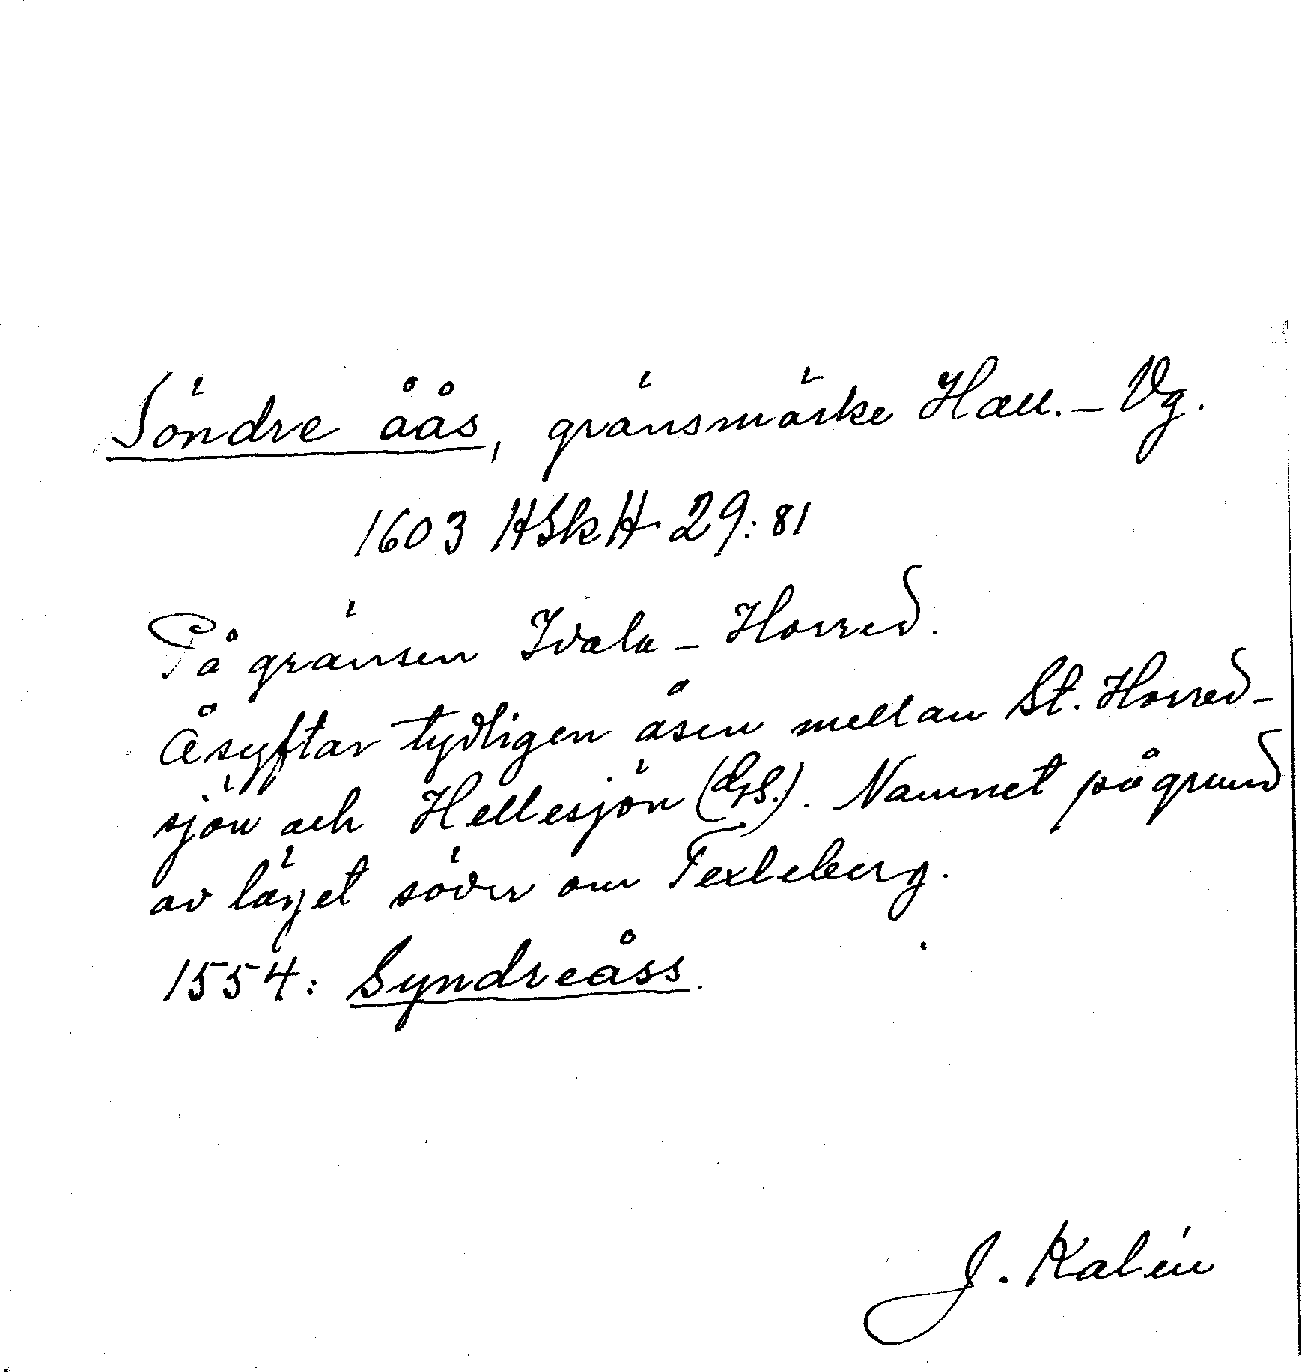 Söndre åås, gränsmärke Hall. – Vg.
1603 HSkH 29:81
På gränsen Idala – Horred.
Åsyftar tydligen åsen mellan St. Horred-
sjön och Hellesjön (GS.). Namnet på grund
av läget söder om Texleberg.
1554: Syndreåss.
J. Kalén